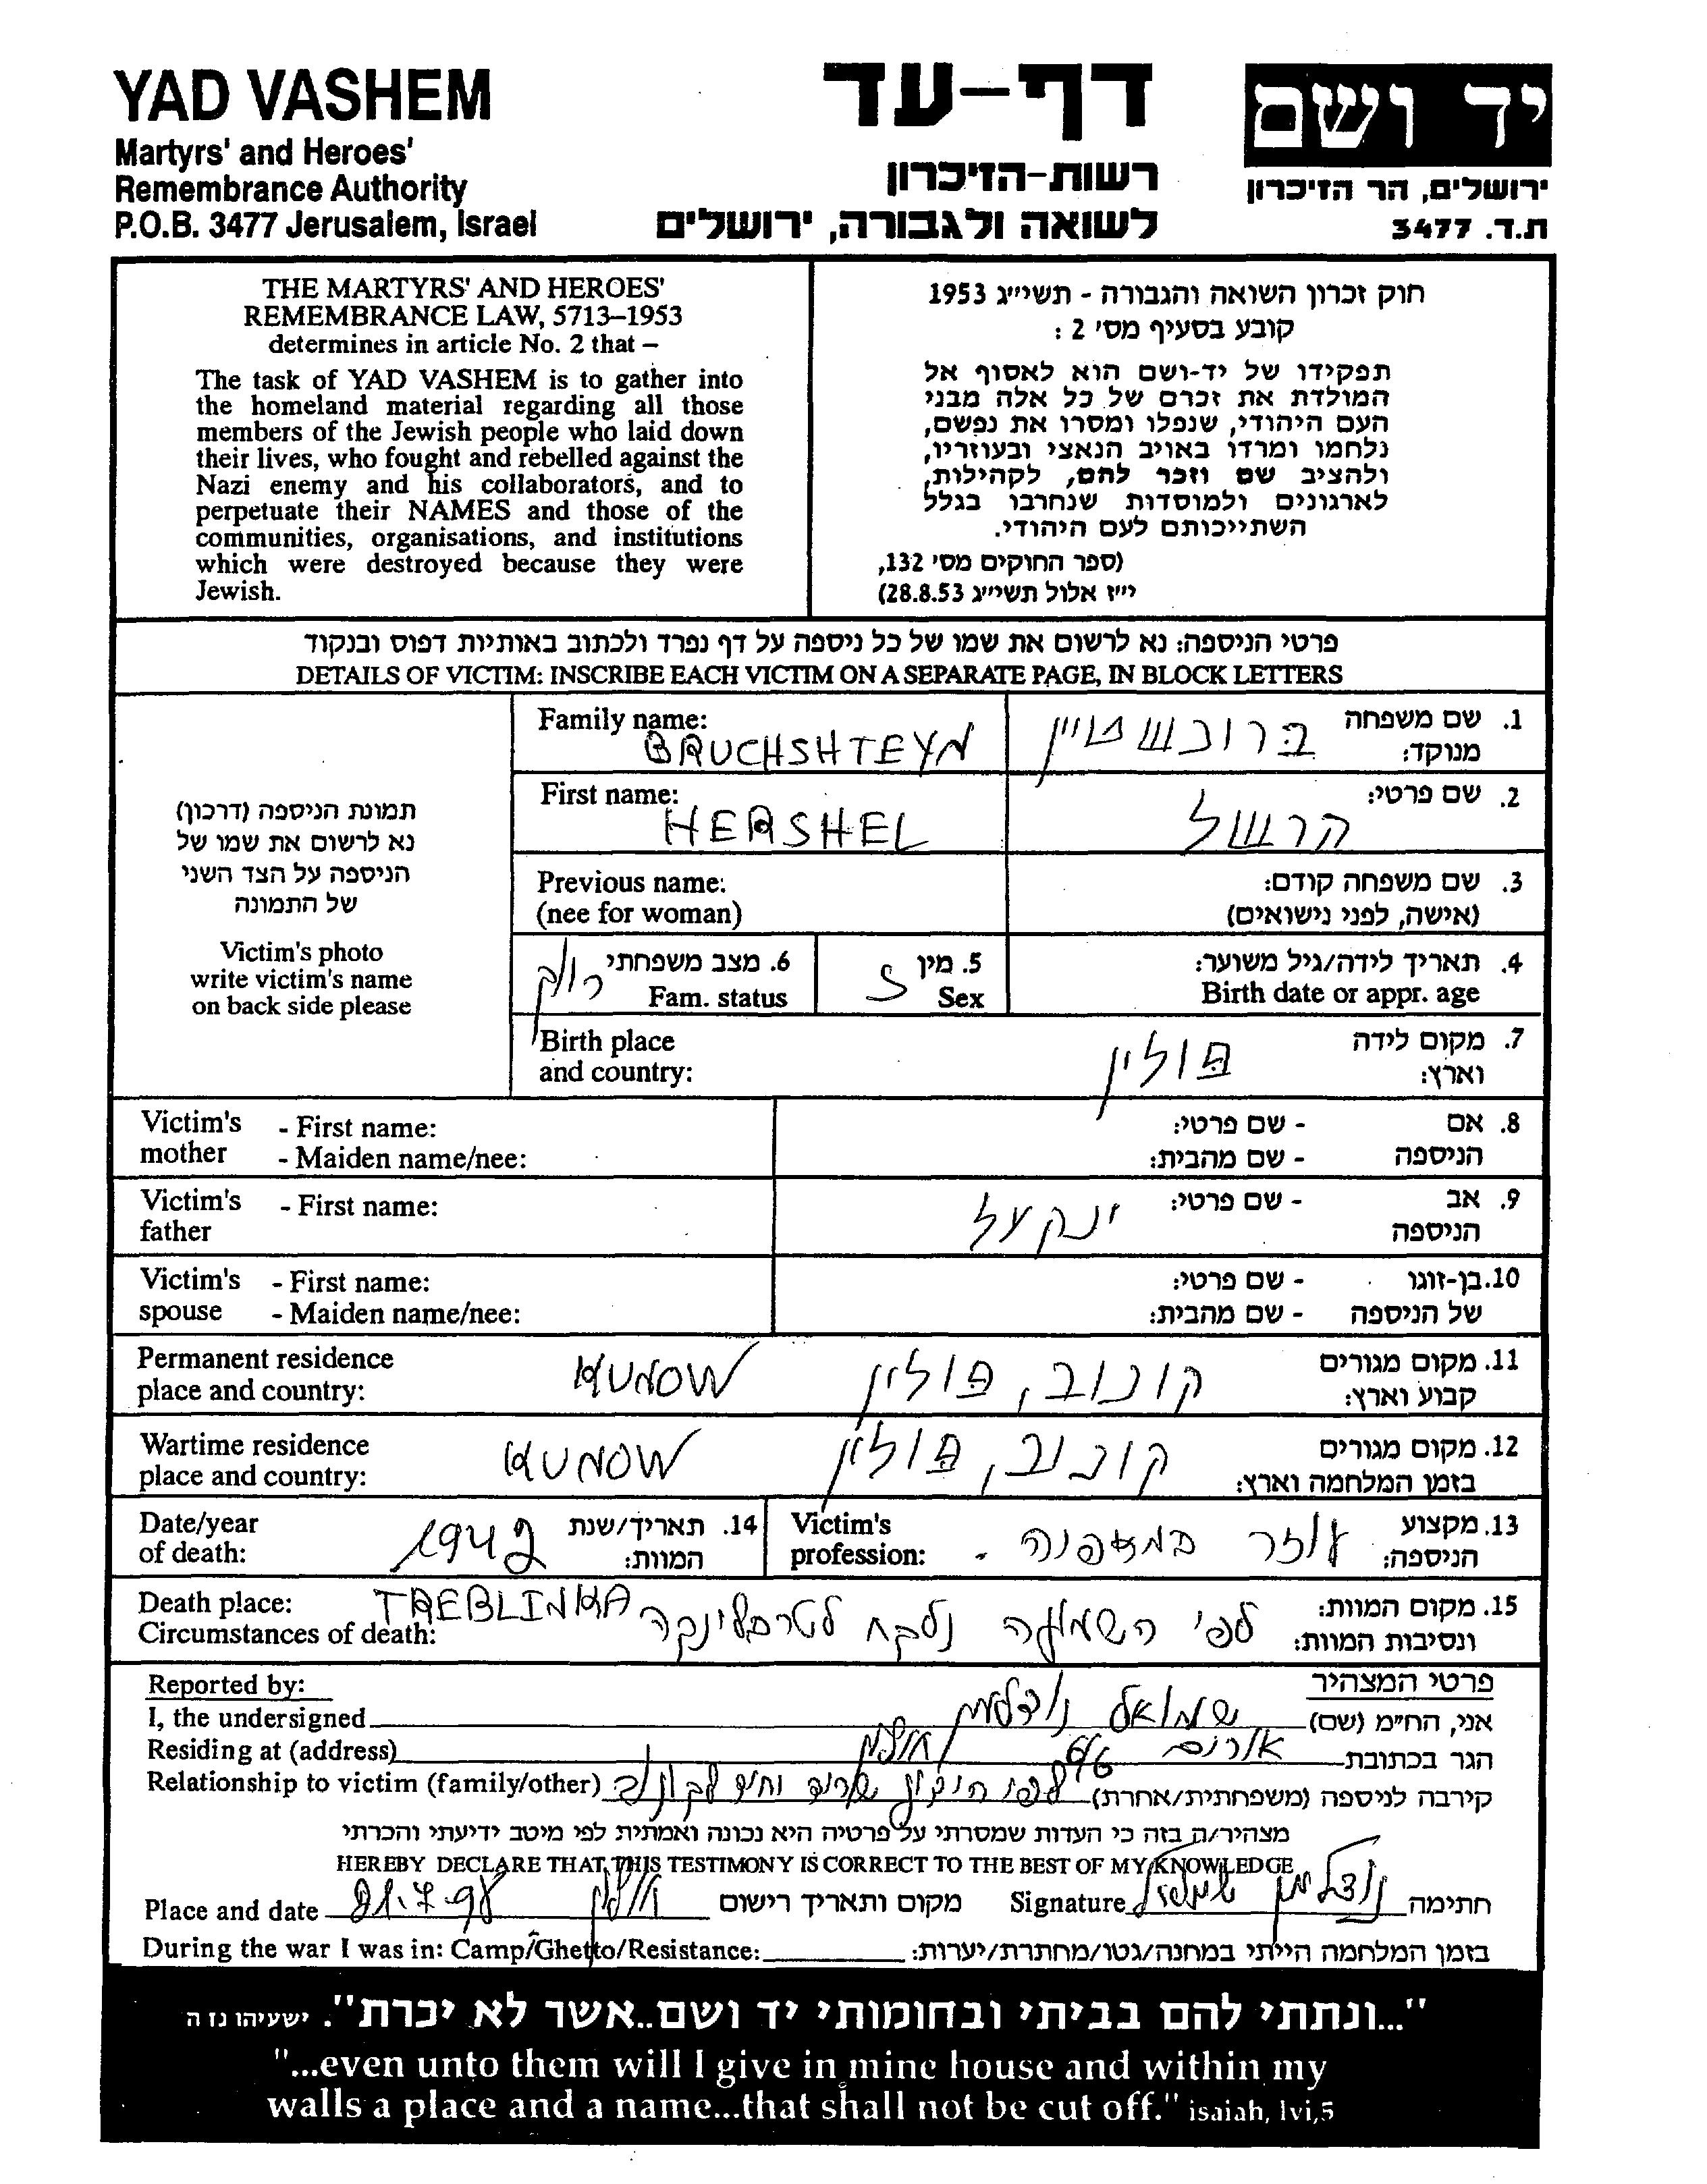 YAD VASHEM
Martyrs' and Heroes'
Remembrance Authority
P.O.B. 3477 Jerusalem, Israel
דף-עד
רשות-הזיכרון
לשואה ולגבורה, ירושלים
יד ושם
ירושלים, הר הזיכרון
ת.ד. 3477
THE MARTYRS' AND HEROES'
REMEMBRANCE LAW, 5713–1953
determines in article No. 2 that –
The task of YAD VASHEM is to gather into
the homeland material regarding all those
members of the Jewish people who laid down
their lives, who fought and rebelled against the
Nazi enemy and his collaborators, and to
perpetuate their NAMES and those of the
communities, organisations, and institutions
which were destroyed because they were
Jewish.
חוק זכרון השואה והגבורה - תשי״ג 1953
קובע בסעיף מס׳ 2 :
תפקידו של יד-ושם הוא לאסוף אל
המולדת את זכרם של כל אלה מבני
העם היהודי, שנפלו ומסרו את נפשם,
נלחמו ומרדו באויב הנאצי ובעוזריו,
ולהציב שם וזכר להם, לקהילות,
לארגונים ולמוסדות שנחרבו בגלל
השתייכותם לעם היהודי.
(ספר החוקים מס׳ 132,
י״ז אלול תשי״ג 28.8.53)
פרטי הניספה: נא לרשום את שמו של כל ניספה על דף נפרד ולכתוב באותיות דפוס ובנקוד
DETAILS OF VICTIM: INSCRIBE EACH VICTIM ON A SEPARATE PAGE, IN BLOCK LETTERS
תמונת הניספה (דרכון)
נא לרשום את שמו של
הניספה על הצד השני
של התמונה
Victim's photo
write victim's name
on back side please
Family name: BRUCHSHTEYN
1. שם משפחה מנוקד: ברוכשטיין
First name: HERSHEL
2. שם פרטי: הרשל
Previous name:
(nee for woman)
3. שם משפחה קודם:
(אישה, לפני נישואים)
6. מצב משפחתי רווק
Fam. status
5. מין ז
Sex
4. תאריך לידה/גיל משוער:
Birth date or appr. age
Birth place
and country:
7. מקום לידה
וארץ: פולין
Victim's mother - First name:
- Maiden name/nee:
8. אם הניספה - שם פרטי:
- שם מהבית:
Victim's father - First name:
9. אב הניספה - שם פרטי: ינקעל
Victim's spouse - First name:
- Maiden name/nee:
10. בן-זוגו של הניספה - שם פרטי:
- שם מהבית:
Permanent residence
place and country: KUNOW
11. מקום מגורים
קבוע וארץ: קונוב, פולין
Wartime residence
place and country: KUNOW
12. מקום מגורים
בזמן המלחמה וארץ: קונוב, פולין
Date/year
of death:
14. תאריך/שנת
המוות: 1942
Victim's
profession:
13. מקצוע
הניספה: עוזר במאפה
Death place: TREBLINKA
Circumstances of death:
15. מקום המוות:
ונסיבות המוות: לפי השמועה נלקח לטרבלינקה
Reported by:
פרטי המצהיר
I, the undersigned
אני, הח״מ (שם) שמואל
Residing at (address)
הגר בכתובת אורנים 6/6 חולון
Relationship to victim (family/other)
קירבה לניספה (משפחתית/אחרת)
מצהיר/ה בזה כי העדות שמסרתי על פרטיה היא נכונה ואמתית לפי מיטב ידיעתי והכרתי
HEREBY DECLARE THAT THIS TESTIMONY IS CORRECT TO THE BEST OF MY KNOWLEDGE
Place and date 21.7.98 חולון מקום ותאריך רישום
Signature שמואל חתימה
During the war I was in: Camp/Ghetto/Resistance:
בזמן המלחמה הייתי במחנה/גטו/מחתרת/יערות:
"...ונתתי להם בביתי ובחומותי יד ושם..אשר לא יכרת". ישעיהו נז ה
"...even unto them will I give in mine house and within my
walls a place and a name...that shall not be cut off." isaiah, lvi,5